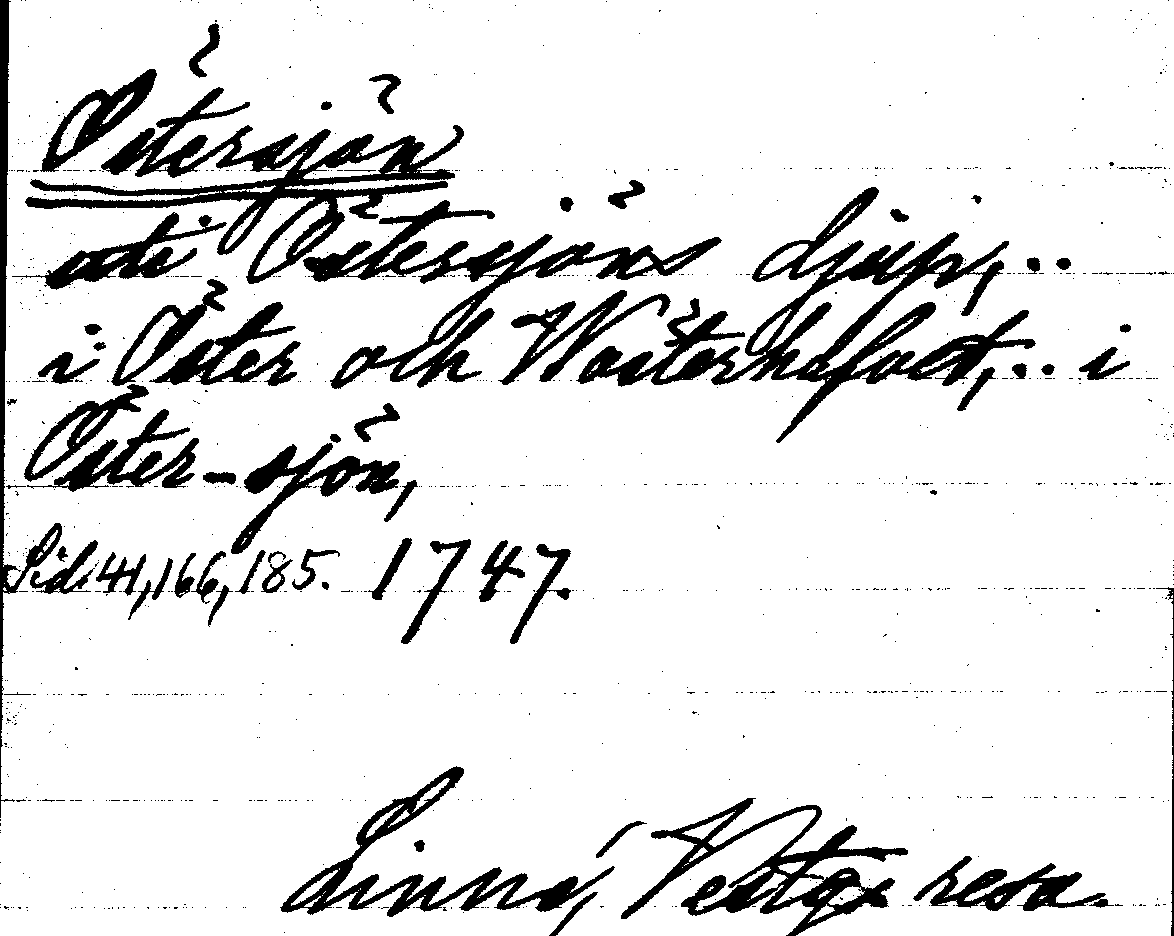 Östersjön
uti Östersjöns djup,..
i Öster och Wästerhafvet,.. i
Öster-sjön,
Sid. 41, 166, 185. 1747.
Linné, Vestg. resa.